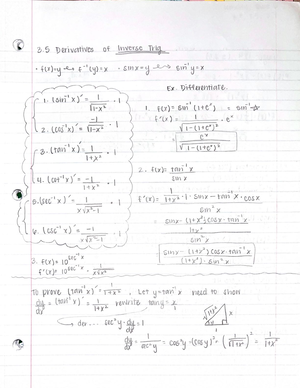 3.5 Derivatives of Inverse Trig
· f(x)=y ⟷ f⁻¹(y)=x · sinx=y ⟷ sin⁻¹y=x
1. (sin⁻¹x)' = 1/√(1-x²) · 1
2. (cos⁻¹x)' = -1/√(1-x²) · 1
3. (tan⁻¹x)' = 1/(1+x²) · 1
4. (cot⁻¹x)' = -1/(1+x²) · 1
5. (sec⁻¹x)' = 1/(x√(x²-1)) · 1
6. (csc⁻¹x)' = -1/(x√(x²-1)) · 1
Ex. Differentiate.
1. f(x) = sin⁻¹(1+eˣ)
f'(x) = 1/√(1-(1+eˣ)²) · eˣ
= eˣ/√(1-(1+eˣ)²)
2. f(x) = tan⁻¹x/sinx
f'(x) = (1/(1+x²) · 1 · sinx - tan⁻¹x · cosx)/sin²x
sinx - (1+x²)cosx · tan⁻¹x
1+x²
sin²x
sinx - (1+x²)cosx · tan⁻¹x
(1+x²) · sin²x
3. f(x) = 10^(sec⁻¹x)
f'(x) = 10^(sec⁻¹x) ·
To prove (tan⁻¹x)' = 1/(1+x²), let y=tan⁻¹x need to show
dy/dx = (tan⁻¹x)' = 1/(1+x²) rewrite tany = x/1
der... sec²y · dy/dx = 1
dy/dx = 1/sec²y = cos²y = (cosy)² = (1/√(1+x²))² = 1/(1+x²)
√(1+x²) x
y
1